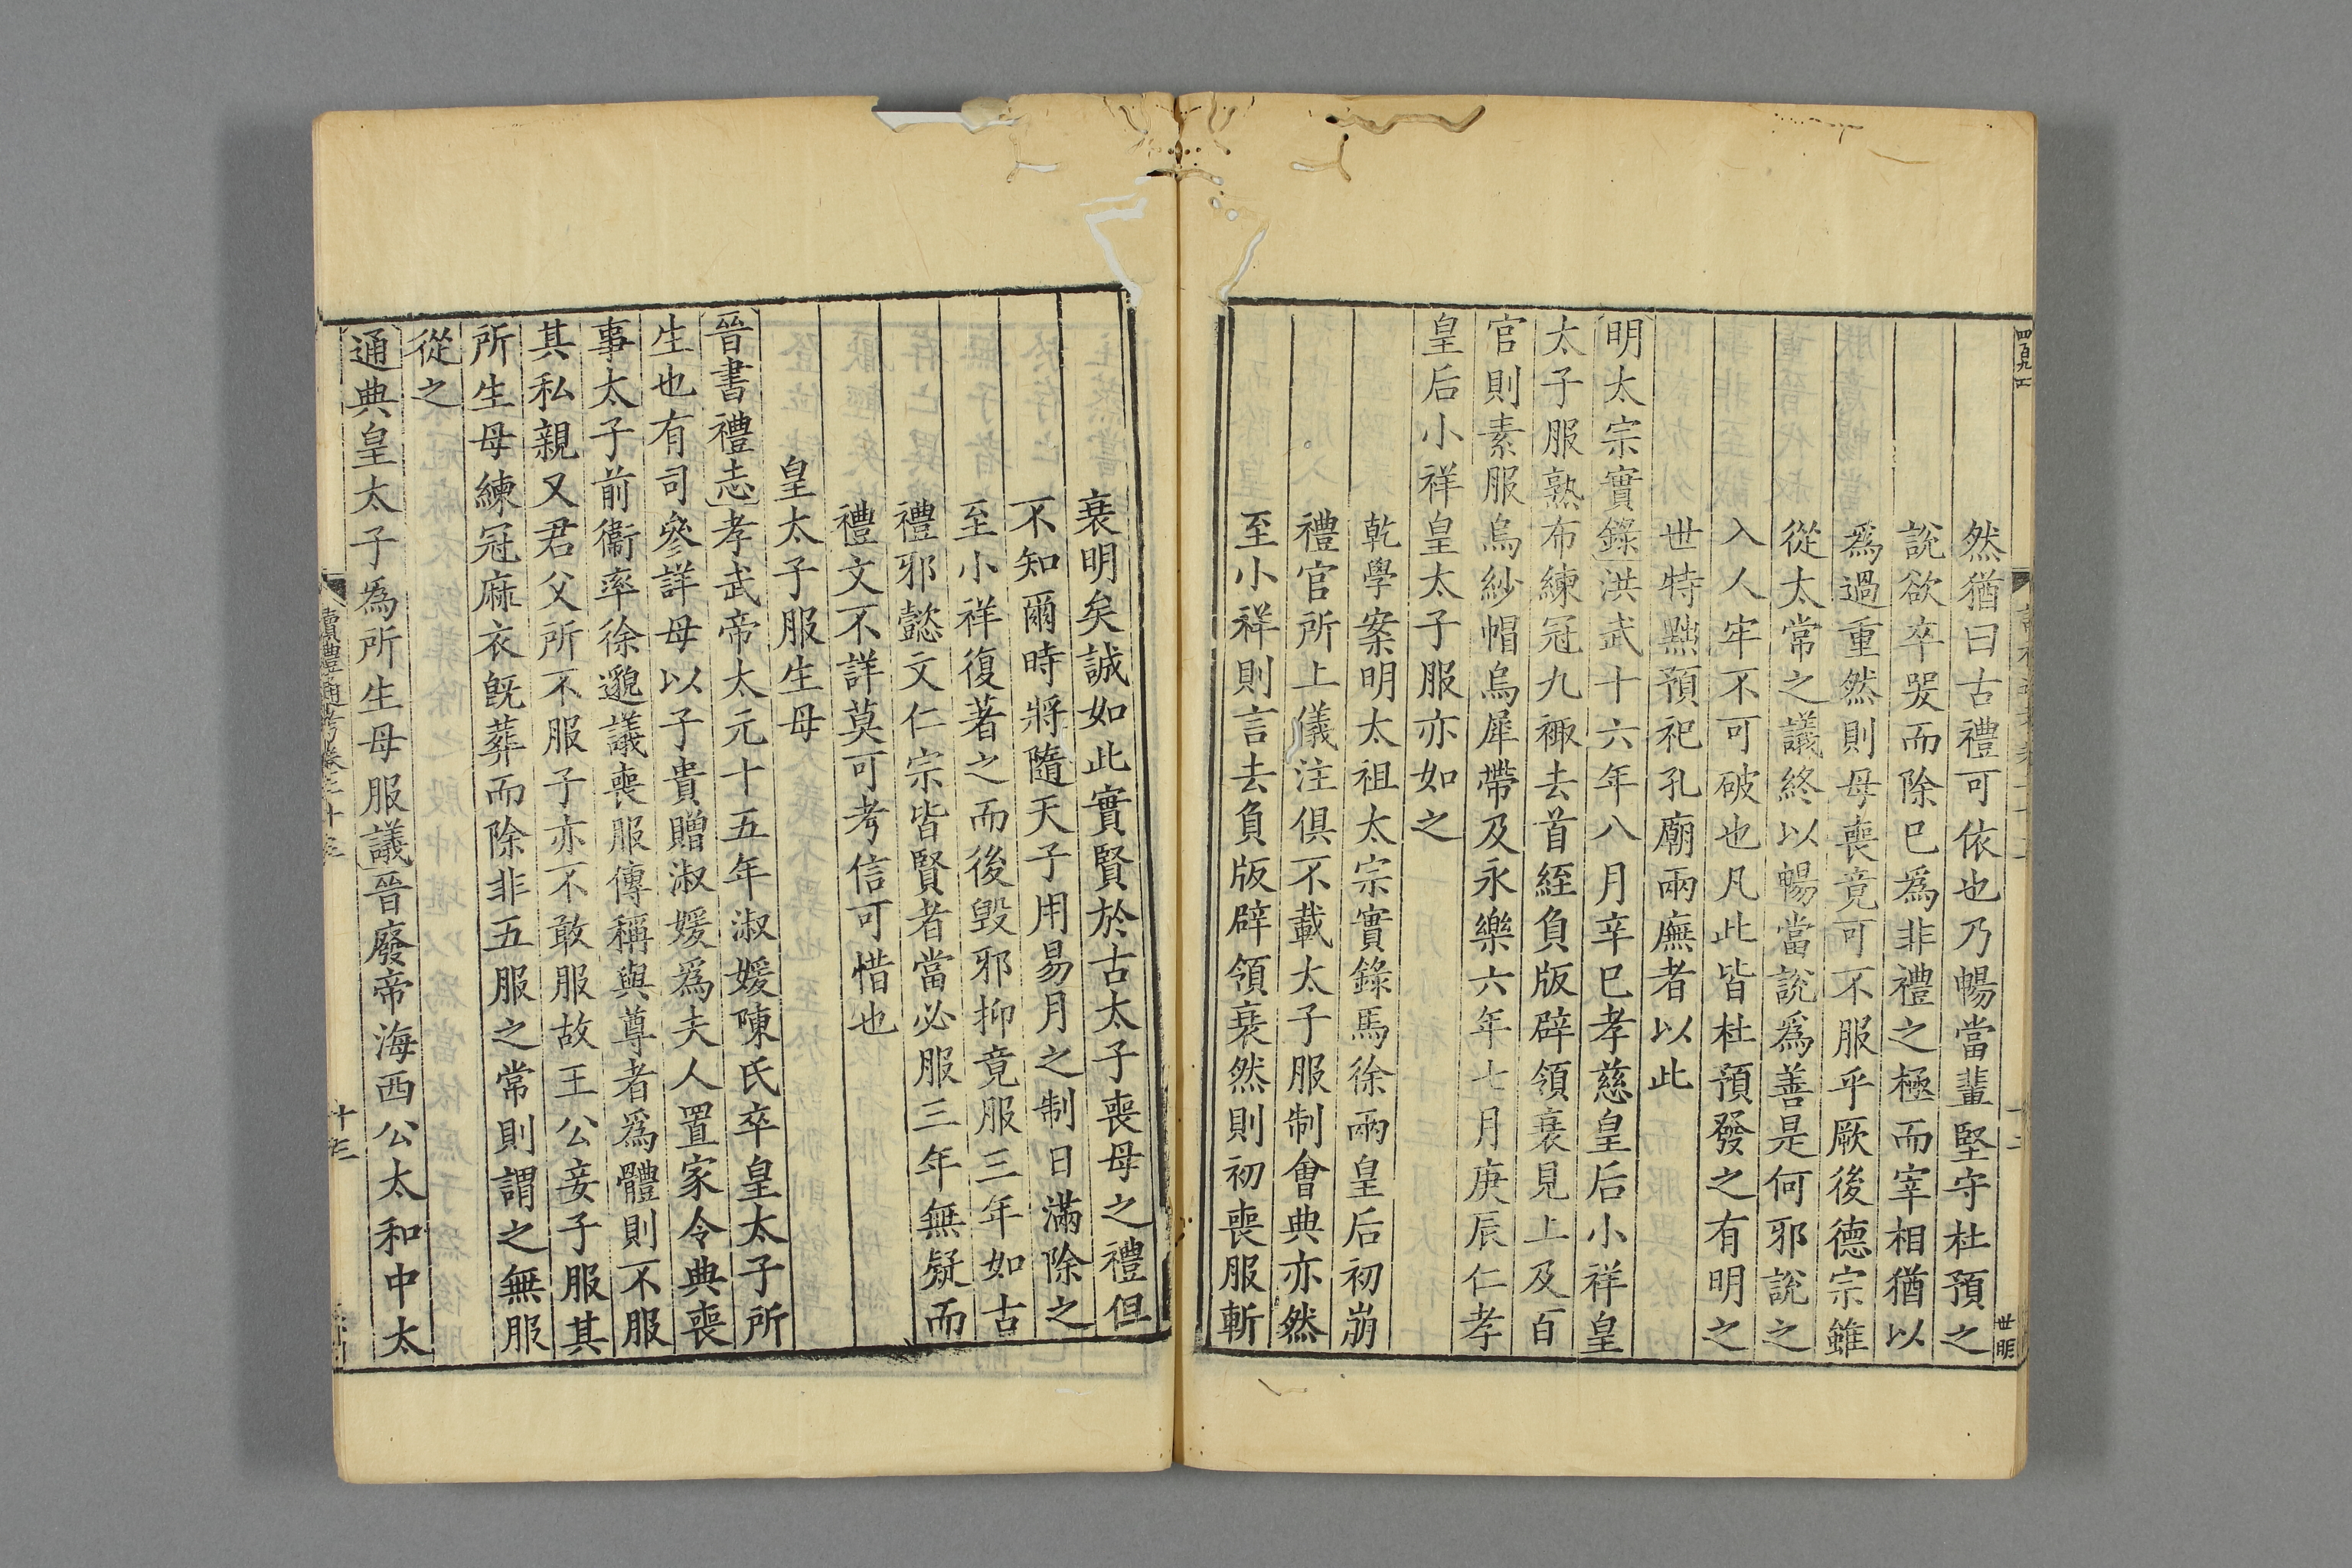 然猶曰古禮可依也乃暢當輩堅守杜預之
說欲卒哭而除已爲非禮之極而宰相猶以
爲過重然則母喪竟可不服乎厥後德宗雖
從太常之議終以暢當說爲善是何邪說之
入人牢不可破也凡此皆杜預發之有明之
世特黜預祀孔廟兩廡者以此
明太宗實錄洪武十六年八月辛巳孝慈皇后小祥皇
太子服熟布練冠九䙏去首絰負版辟領衰見上及百
官則素服烏紗帽烏犀帶及永樂六年七月庚辰仁孝
皇后小祥皇太子服亦如之
乾學案明太祖太宗實錄馬徐兩皇后初崩
禮官所上儀注俱不載太子服制會典亦然
至小祥則言去負版辟領衰然則初喪服斬
衰明矣誠如此實賢於古太子喪母之禮但
不知爾時將隨天子用易月之制日滿除之
至小祥復著之而後毀邪抑竟服三年如古
禮邪懿文仁宗皆賢者當必服三年無疑而
禮文不詳莫可考信可惜也
皇太子服生母
晉書禮志孝武帝太元十五年淑媛陳氏卒皇太子所
生也有司參詳母以子貴贈淑媛爲夫人置家令典喪
事太子前衞率徐邈議喪服傳稱與尊者爲體則不服
其私親又君父所不服子亦不敢服故王公妾子服其
所生母練冠麻衣旣葬而除非五服之常則謂之無服
從之
通典皇太子爲所生母服議晉廢帝海西公太和中太
讀禮通考卷三十三
十三
世明